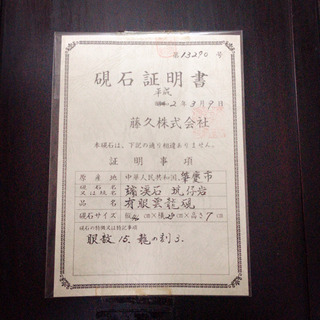 第13290号
硯石証明書
平成
昭和 2年3月9日
藤久株式会社
本硯石は、下記の通り相違ありません。
証明事項
原産地 中華人民共和国、肇慶市
硯石名又は坑名 端溪石 坑仔岩
品名 有眼雲龍硯
硯石サイズ 縦 cm×横 cm×高さ7cm
硯石の特徴又は特記事項
眼数 15、龍の刻り、